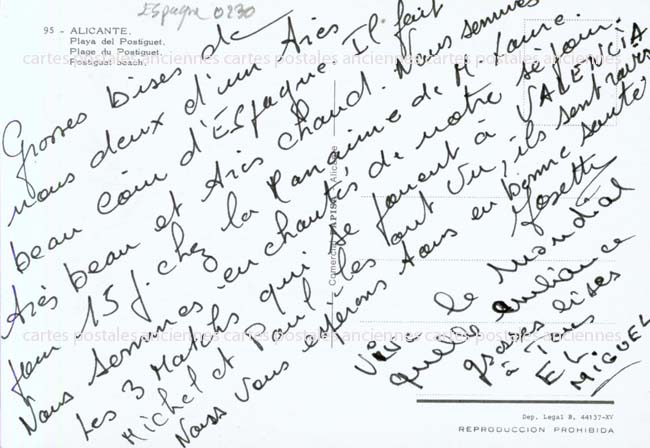 Espagne 0230
95 - ALICANTE.
Playa del Postiguet.
Plage du Postiguet.
Postiguet beach.
Grosses bises de
nous deux d'un très
beau coin d'Espagne. Il fait
très beau et très chaud. Nous sommes
pour 15 j. chez la Marraine de M. Laure.
Nous sommes enchantés de notre séjour.
Les 3 Matchs qui se jouent à VALENCIA
Michel et Paul les ont vu, ils sont ravis
Nous vous espérons tous en bonne santé
Josette
Vive le Mundial
quelle ambiance
grosses bises
à Tous
EL
MIGUEL
Comercial Alicante
Dep. Legal B. 44137-XV
REPRODUCCION PROHIBIDA
cartes postales anciennes cartes postales anciennes cartes postales anciennes
cartes postales anciennes cartes postales anciennes cartes postales anciennes